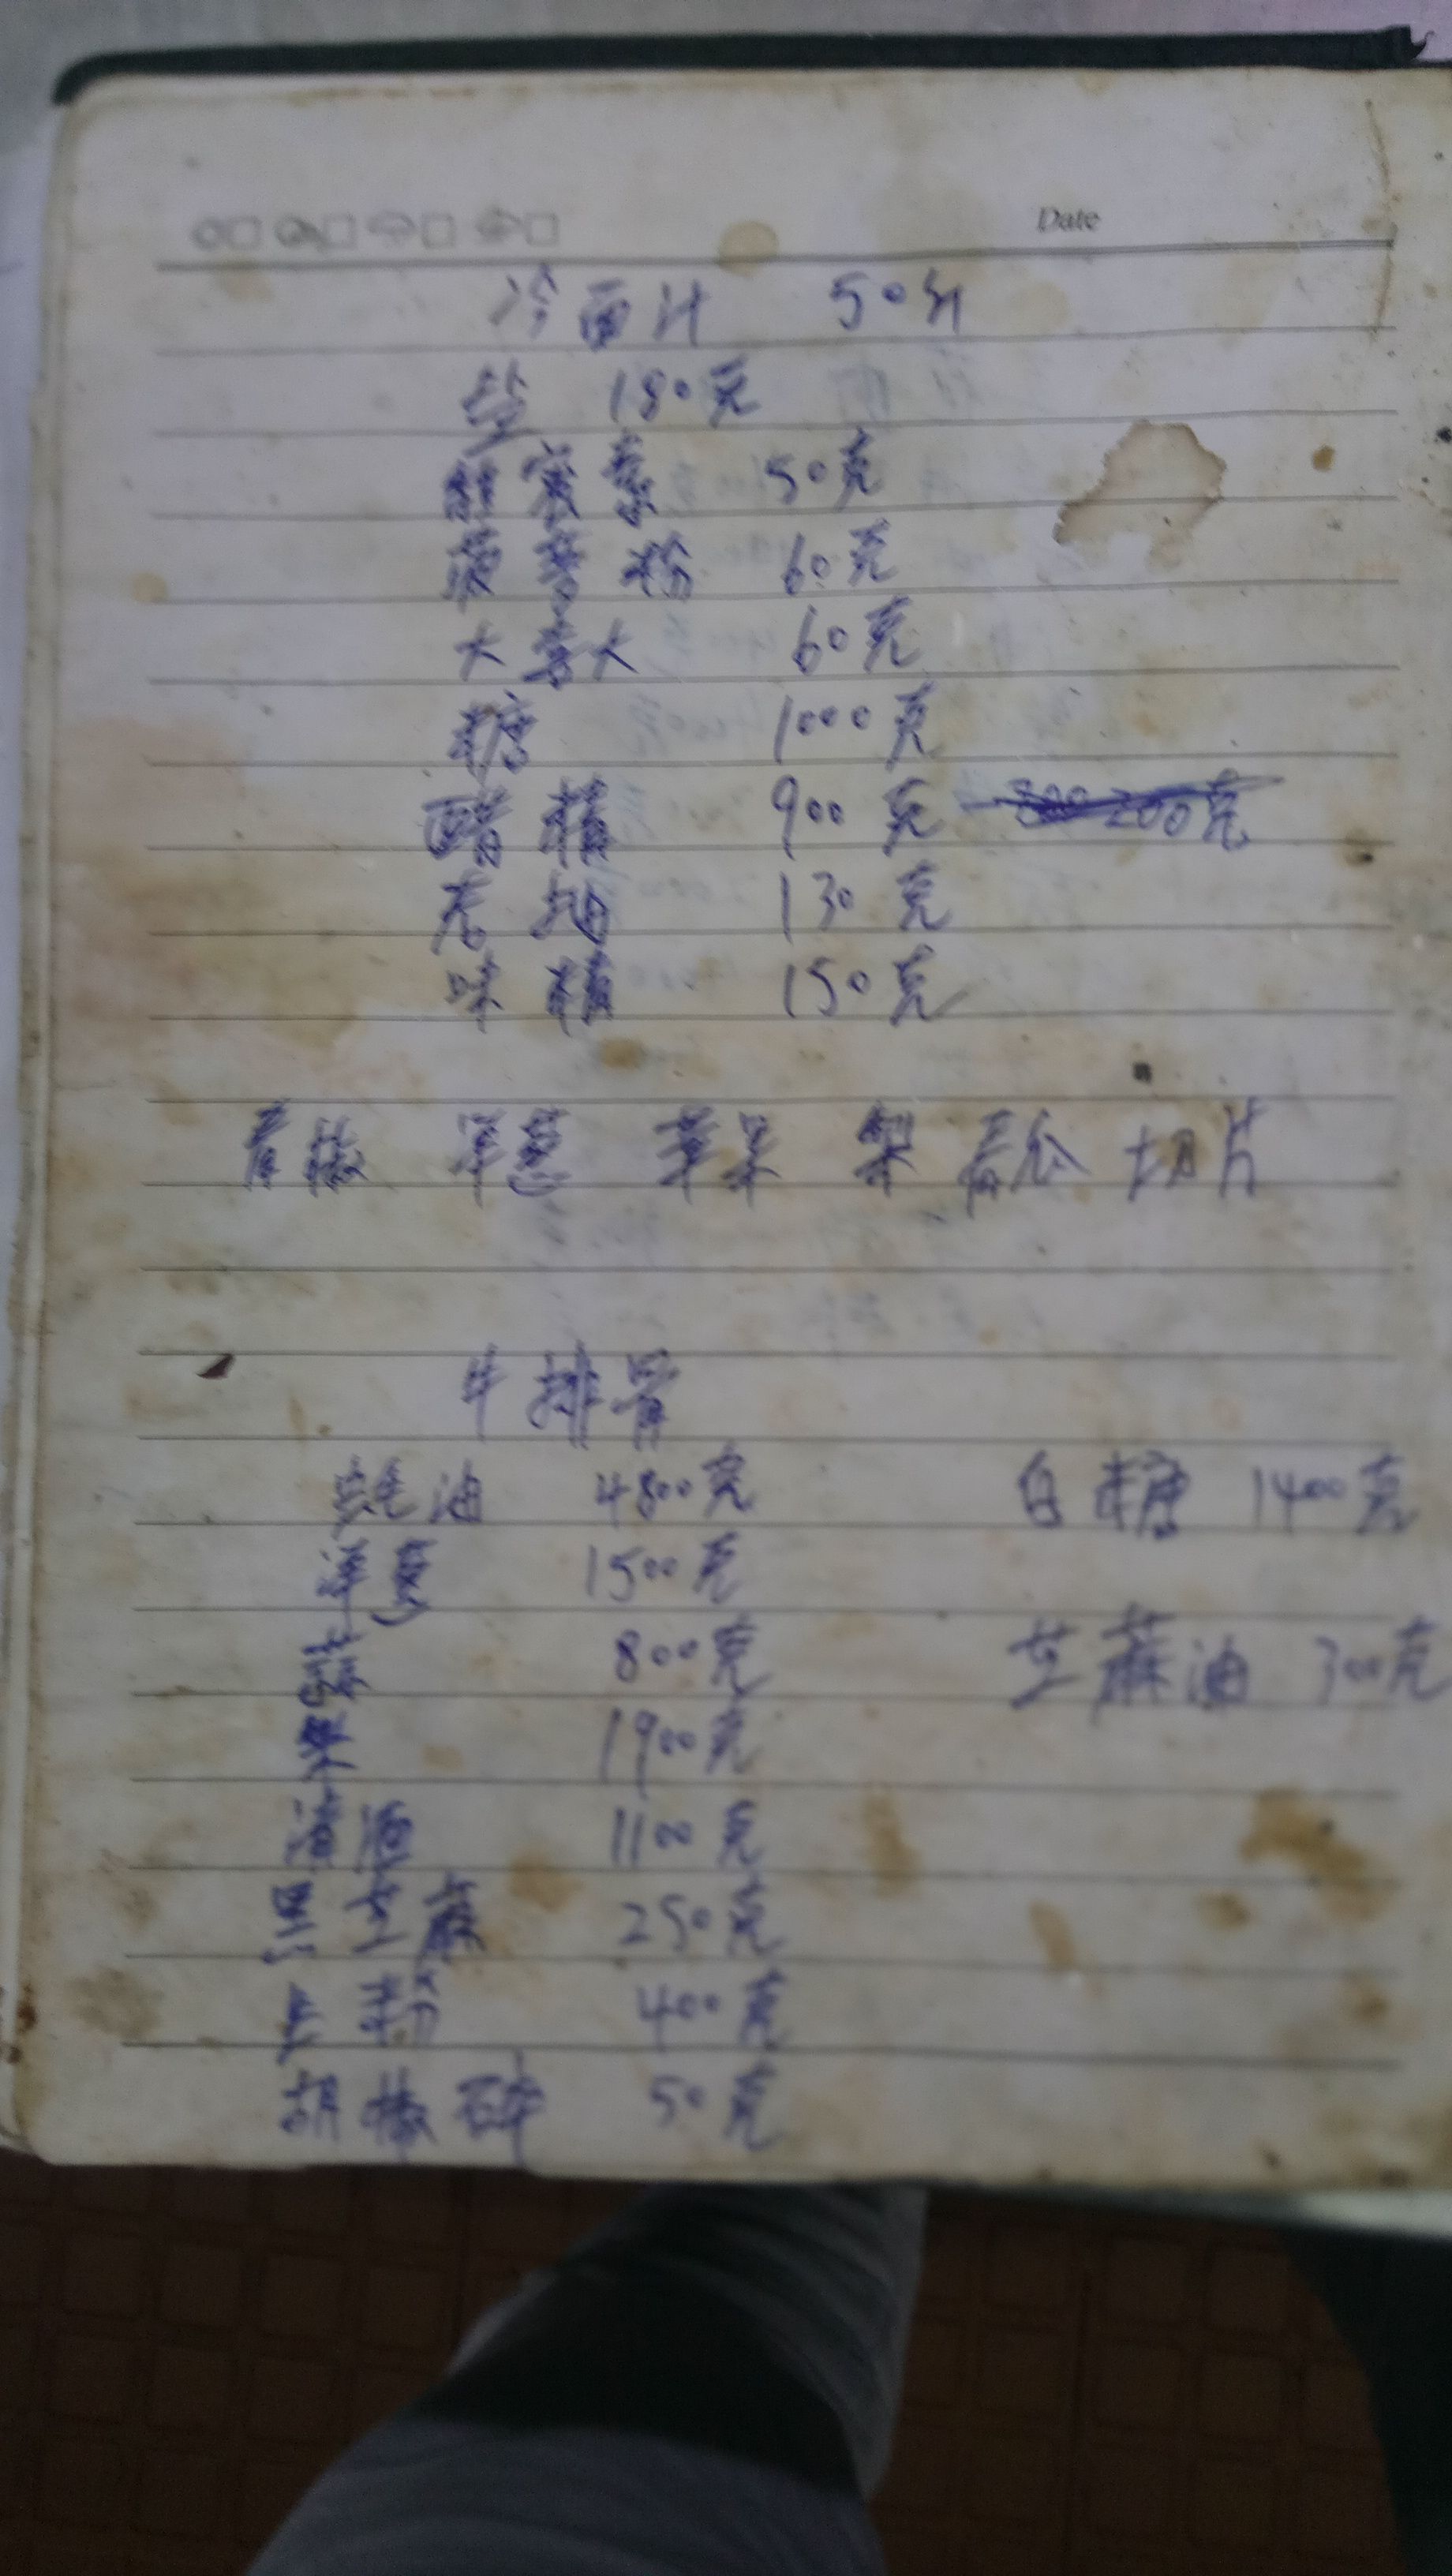 Date
冷面汁 50斤
盐 180克
甜蜜素 50克
菠萝粉 60克
大喜大 60克
糖 1000克
醋精 900克 200克
老抽 130克
味精 150克
青椒 洋葱 苹果 梨 黄瓜 切片
牛排骨
蚝油 4800克 白糖 1400克
洋葱 1500克
蒜 800克 芝蔴油 300克
梨 1900克
清酒 1100克
黑芝蔴 250克
粉 400克
胡椒碎 50克